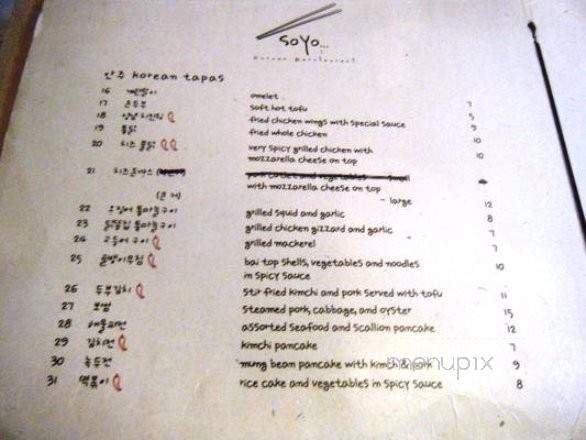 soyo...
Korean Restaurant
안주 Korean tapas
16 계란말이 omelet 7
17 온두부 soft hot tofu 5
18 양념 치킨윙 fried chicken wings with special sauce 9
19 통닭 fried whole chicken 10
20 치즈 불닭 very spicy grilled chicken with
mozzarella cheese on top 10
21 치즈돈까스
with mozzarella cheese on top
(큰 거) - large 12
22 오징어 통마늘구이 grilled squid and garlic 8
23 닭똥집 통마늘구이 grilled chicken gizzard and garlic 7
24 고등어구이 grilled mackerel 7
25 골뱅이무침 bai top shells, vegetables and noodles
in spicy sauce 10
26 두부김치 stir fried kimchi and pork served with tofu 11
27 보쌈 steamed pork, cabbage, and oyster 15
28 해물파전 assorted seafood and scallion pancake 12
29 김치전 kimchi pancake 7
30 녹두전 mung bean pancake with kimchi & pork 9
31 떡볶이 rice cake and vegetables in spicy sauce 8
menupix